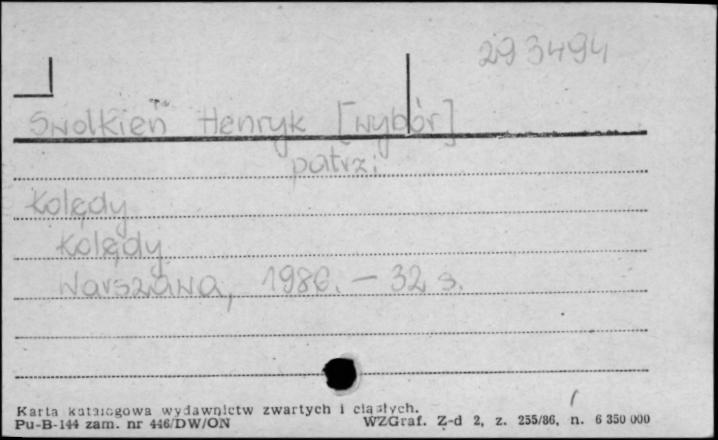 293494
Swolkień Henryk [wybór]
patrz:
Kolędy
Kolędy
Warszawa, 1986. – 32 s.
Karta katalogowa wydawnictw zwartych i ciągłych.
Pu-B-144 zam. nr 446/DW/ON WZGraf. Z-d 2, z. 255/86, n. 6 350 000